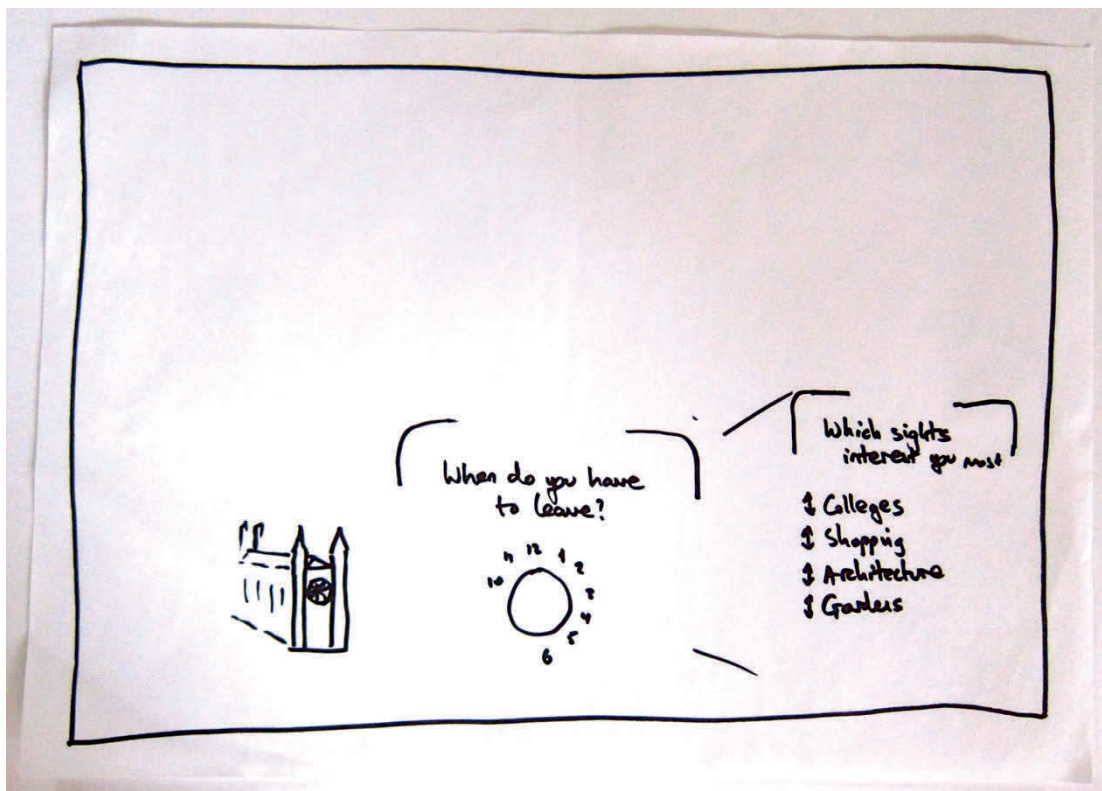 When do you have
to leave?
11 12 1
10 2
3
4
5
6
Which sights
interest you most
↕ Colleges
↕ Shopping
↕ Architecture
↕ Gardens